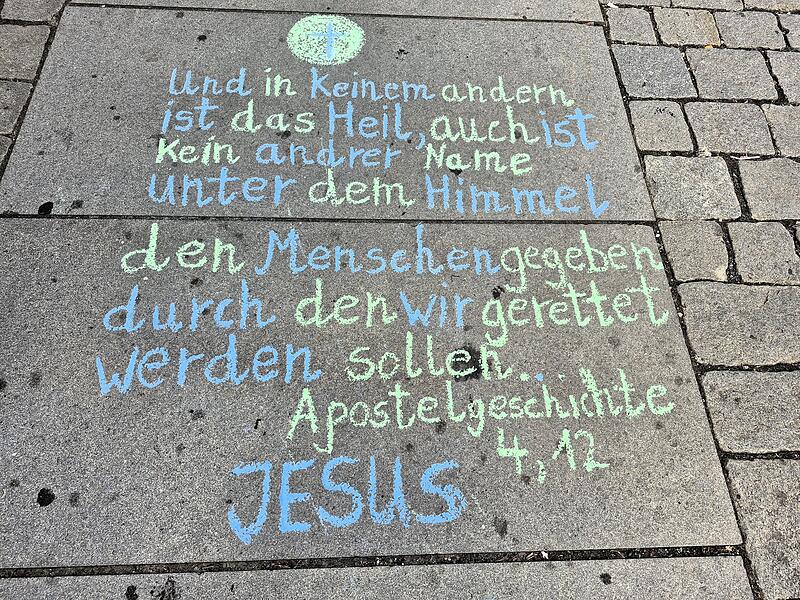 Und in keinem andern
ist das Heil, auch ist
kein andrer Name
unter dem Himmel
den Menschen gegeben
durch den wir gerettet
werden sollen...
Apostelgeschichte
4,12
JESUS